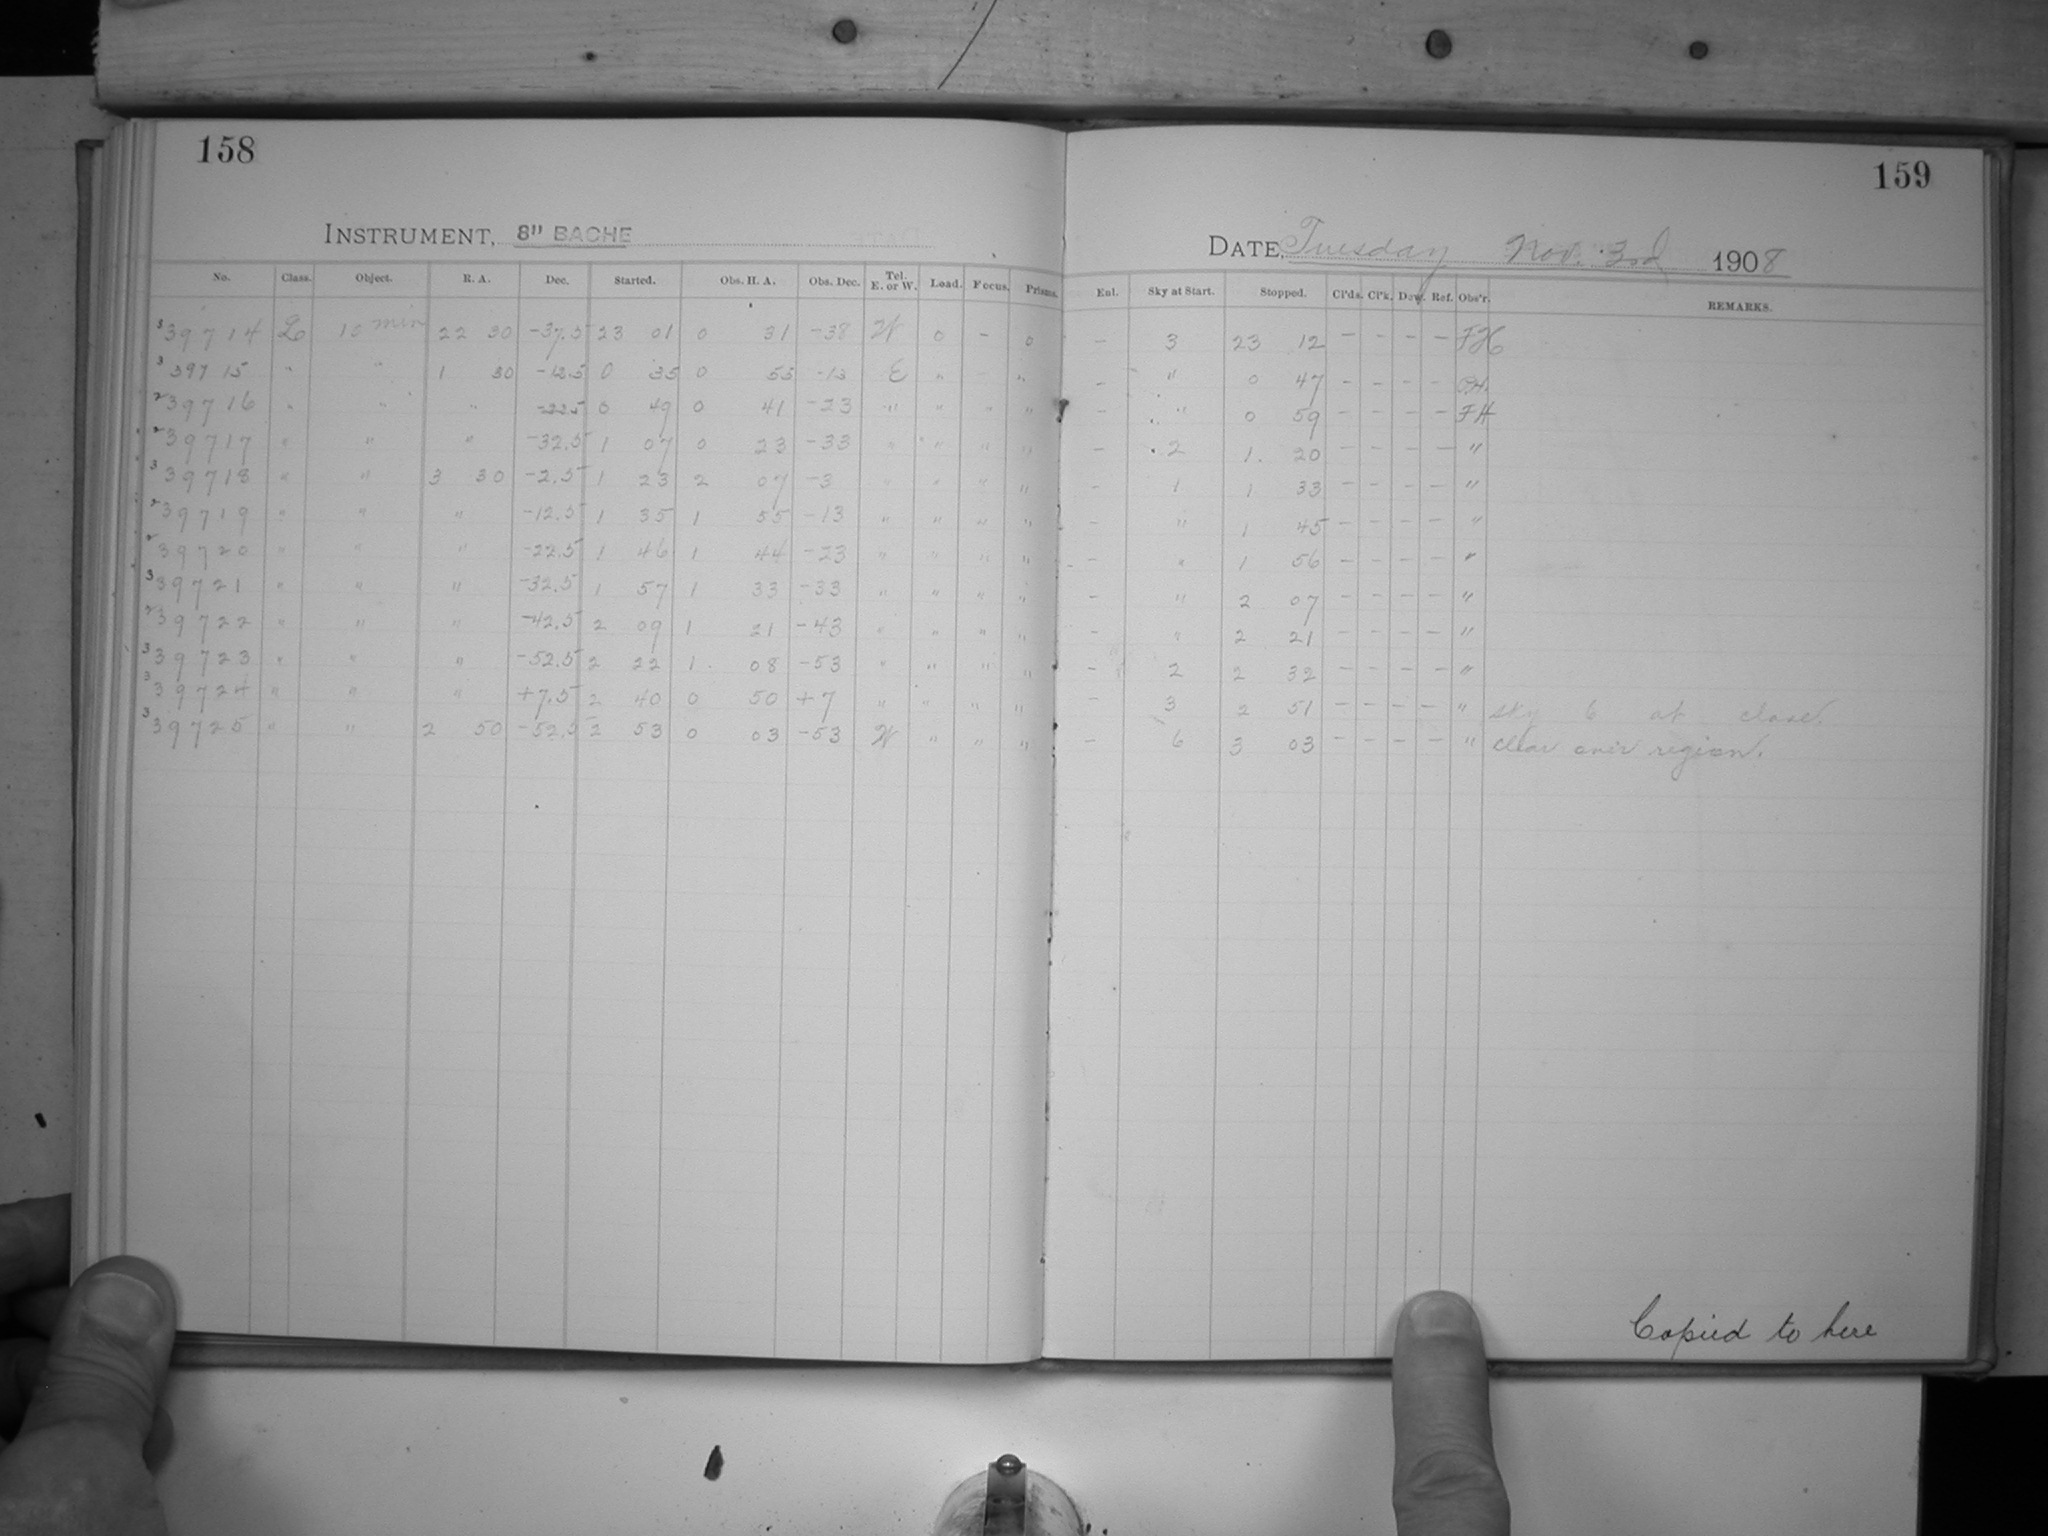 158
INSTRUMENT, 8" BACHE
No. Class. Object. R. A. Dec. Started. Obs. H. A. Obs. Dec. Tel. E. or W. Load. Focus. Prisms.
3 39714 L 10 min 22 30 -37.5 23 01 0 31 -38 W 0 - 0
3 39715 " " 1 30 -12.5 0 35 0 55 -13 E " "
2 39716 " " " -22.5 0 49 0 41 -23 " " " "
2 39717 " " " -32.5 1 07 0 23 -33 " " " "
3 39718 " " 3 30 -2.5 1 23 2 07 -3 " " " "
2 39719 " " " -12.5 1 35 1 55 -13 " " " "
2 39720 " " " -22.5 1 46 1 44 -23 " " " "
3 39721 " " " -32.5 1 57 1 33 -33 " " " "
2 39722 " " " -42.5 2 09 1 21 -43 " " " "
3 39723 " " " -52.5 2 22 1 08 -53 " " " "
3 39724 " " " +7.5 2 40 0 50 +7 " " " "
3 39725 " " 2 50 -52.5 2 53 0 03 -53 W " " "
159
DATE, Tuesday Nov. 3rd 1908
Enl. Sky at Start. Stopped. Cl'ds. Cl'k. Dew. Ref. Obs'r. REMARKS.
- 3 23 12 - - - - FH
- " 0 47 - - - -
- " 0 59 - - - - FH
- 2 1 20 - - - - "
- 1 1 33 - - - - "
- " 1 45 - - - - "
- " 1 56 - - - - "
- " 2 07 - - - - "
- " 2 21 - - - - "
- 2 2 32 - - - - "
- 3 2 51 - - - - " sky 6 at close.
- 6 3 03 - - - - " clear over region.
Copied to here